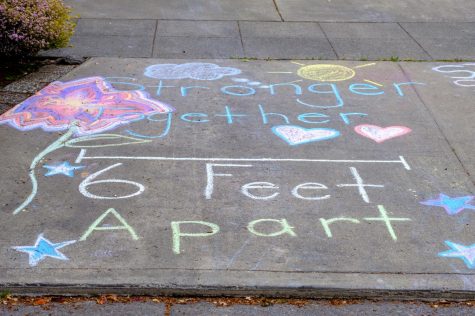 Stronger
together
6 Feet
Apart